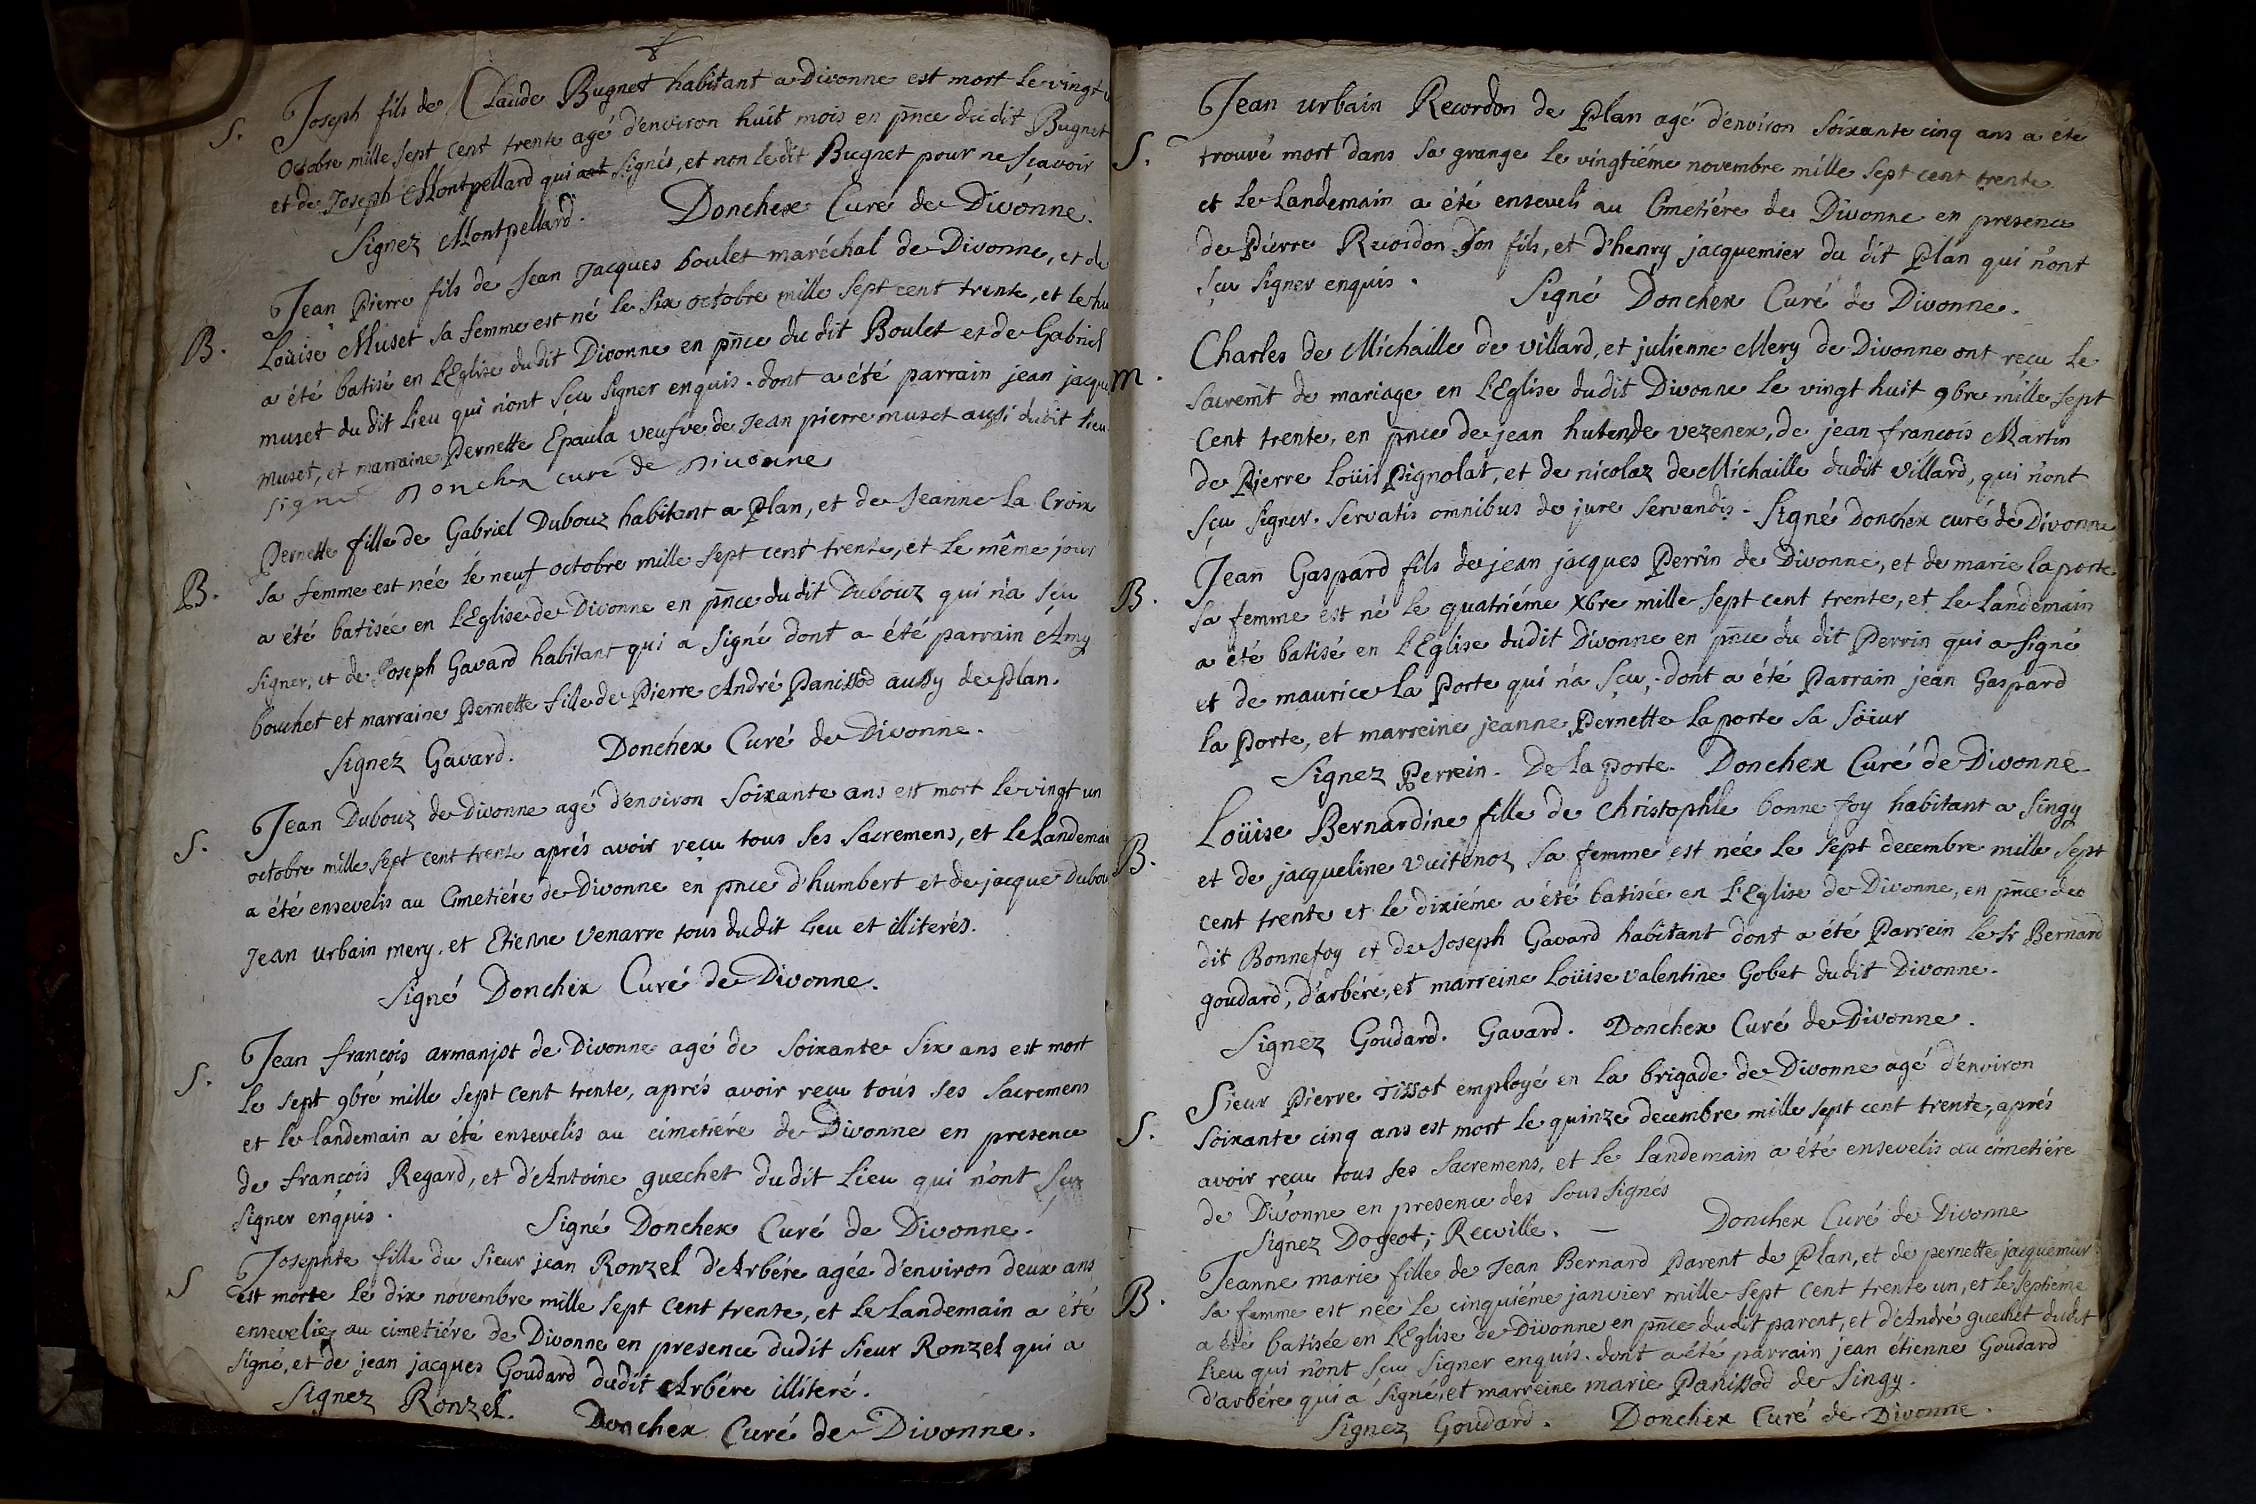 S. Joseph fils de Claude Bugnet habitant a Divonne est mort le vingt
octobre mille sept cent trente agé d'environ huit mois en pnce du dit Bugnet
et de Joseph Montpellard qui ont signés, et non le dit Bugnet pour ne sçavoir
Signez Montpellard. Donchex Curé de Divonne.
B. Jean Pierre fils de Jean Jacques boulet maréchal de Divonne, et de
Loüise Muset sa femme est né le six octobre mille sept cent trente, et le
a été batisé en L'Eglise dudit Divonne en pnce du dit Boulet et de Gabriel
muset du dit Lieu qui n'ont sçu signer enquis. dont a été parrain jean jacque
muset, et marraine Pernette Epaula veufve de Jean pierre muset aussi dudit Lieu
signé Donchex curé de Divonne
B. Pernette fille de Gabriel Dubouz habitant a Plan, et de Jeanne La Croix
sa femme est née le neuf octobre mille sept cent trente, et le même jour
a été batisée en L'Eglise de Divonne en pnce du dit Dubouz qui n'a sçu
signer, et de Joseph Gavard habitant qui a signé dont a été parrain Amy
bouchet et marraine Pernette fille de Pierre André Panissod aussy de Plan.
Signez Gavard. Donchex Curé de Divonne.
S. Jean Dubouz de Divonne agé d'environ soixante ans est mort le vingt un
octobre mille sept cent trente aprés avoir reçu tous ses sacremens, et le Landemai
a été ensevelis au Cimetiére de Divonne en pnce d'humbert et de jacque Dubou
Jean urbain mery, et Etienne Venarre tous dudit Lieu et illiterés.
Signé Donchex Curé de Divonne.
S. Jean françois armanjot de Divonne agé de soixante six ans est mort
le sept 9bre mille sept cent trente, aprés avoir reçu tous ses sacremens
et le landemain a été ensevelis au cimetiére de Divonne en presence
de françois Regard, et d'Antoine guechet dudit Lieu qui n'ont sçu
signer enquis. Signé Donchex Curé de Divonne.
S Josephte fille du sieur jean Ronzel d'Arbére agée d'environ deux ans
est morte le dix novembre mille sept cent trente, et le Landemain a été
ensevelie au cimetiére de Divonne en presence dudit sieur Ronzel qui a
signé, et de jean jacques Goudard dudit Arbére illiteré.
Signez Ronzel. Donchex Curé de Divonne.
S. Jean urbain Recordon de Plan agé d'environ soixante cinq ans a été
trouvé mort dans sa grange le vingtiéme novembre mille sept cent trente
et le Landemain a été enseveli au Cimetiére de Divonne en presence
de Pierre Recordon son fils, et d'henry jacquemier du dit Plan qui n'ont
sçu signer enquis. Signé Donchex Curé de Divonne.
m. Charles de Michaille de villard, et julienne Mery de Divonne ont reçu le
sacremt de mariage en L'Eglise dudit Divonne le vingt huit 9bre mille sept
cent trente, en pnce de jean huten de vezenex, de jean francois Martin
de Pierre Loüis Pignolat, et de nicolaz de Michaille dudit villard, qui n'ont
sçu signer. Servatis omnibus de jure servandis - Signé Donchex curé de Divonne
B. Jean Gaspard fils de jean jacques Perrin de Divonne, et de marie la porte
sa femme est né le quatriéme Xbre mille sept cent trente, et le Landemain
a été batisé en L'Eglise dudit Divonne en pnce du dit Perrin qui a signé
et de maurice la Porte qui n'a sçu, dont a été Parrain jean Gaspard
la Porte, et marreine jeanne Pernette la porte sa sœur
Signez Perrein. De la porte. Donchex Curé de Divonne
B. Loüise Bernardine fille de christophle bonne foy habitant a Singy
et de jacqueline vuitenoz sa femme est née le sept decembre mille sept
cent trente et le dixiéme a été batisée en L'Eglise de Divonne, en pnce du
dit Bonnefoy et de Joseph Gavard habitant dont a été Parrein le sr Bernard
goudard, d'arbére, et marreine Loüise valentine Gobet dudit Divonne.
Signez Goudard. Gavard. Donchex Curé de Divonne.
S. Sieur Pierre Tissot employé en la brigade de Divonne agé d'environ
soixante cinq ans est mort le quinze decembre mille sept cent trente, aprés
avoir reçu tous ses sacremens, et le landemain a été ensevelis au cimetiére
de Divonne en presence des sous signés
Signez Dogeot; Recville. — Donchex Curé de Divonne
B. Jeanne marie fille de Jean Bernard Parent de Plan, et de pernette jacquemier
sa femme est née le cinquiéme janvier mille sept cent trente un, et le septiéme
a été batisée en L'Eglise de Divonne en pnce dudit parent, et d'André guechet dudit
Lieu qui n'ont sçu signer enquis. dont a été parrain jean étienne Goudard
d'arbére qui a signé, et marreine marie Panissod de Singy.
Signez Goudard. Donchex Curé de Divonne.